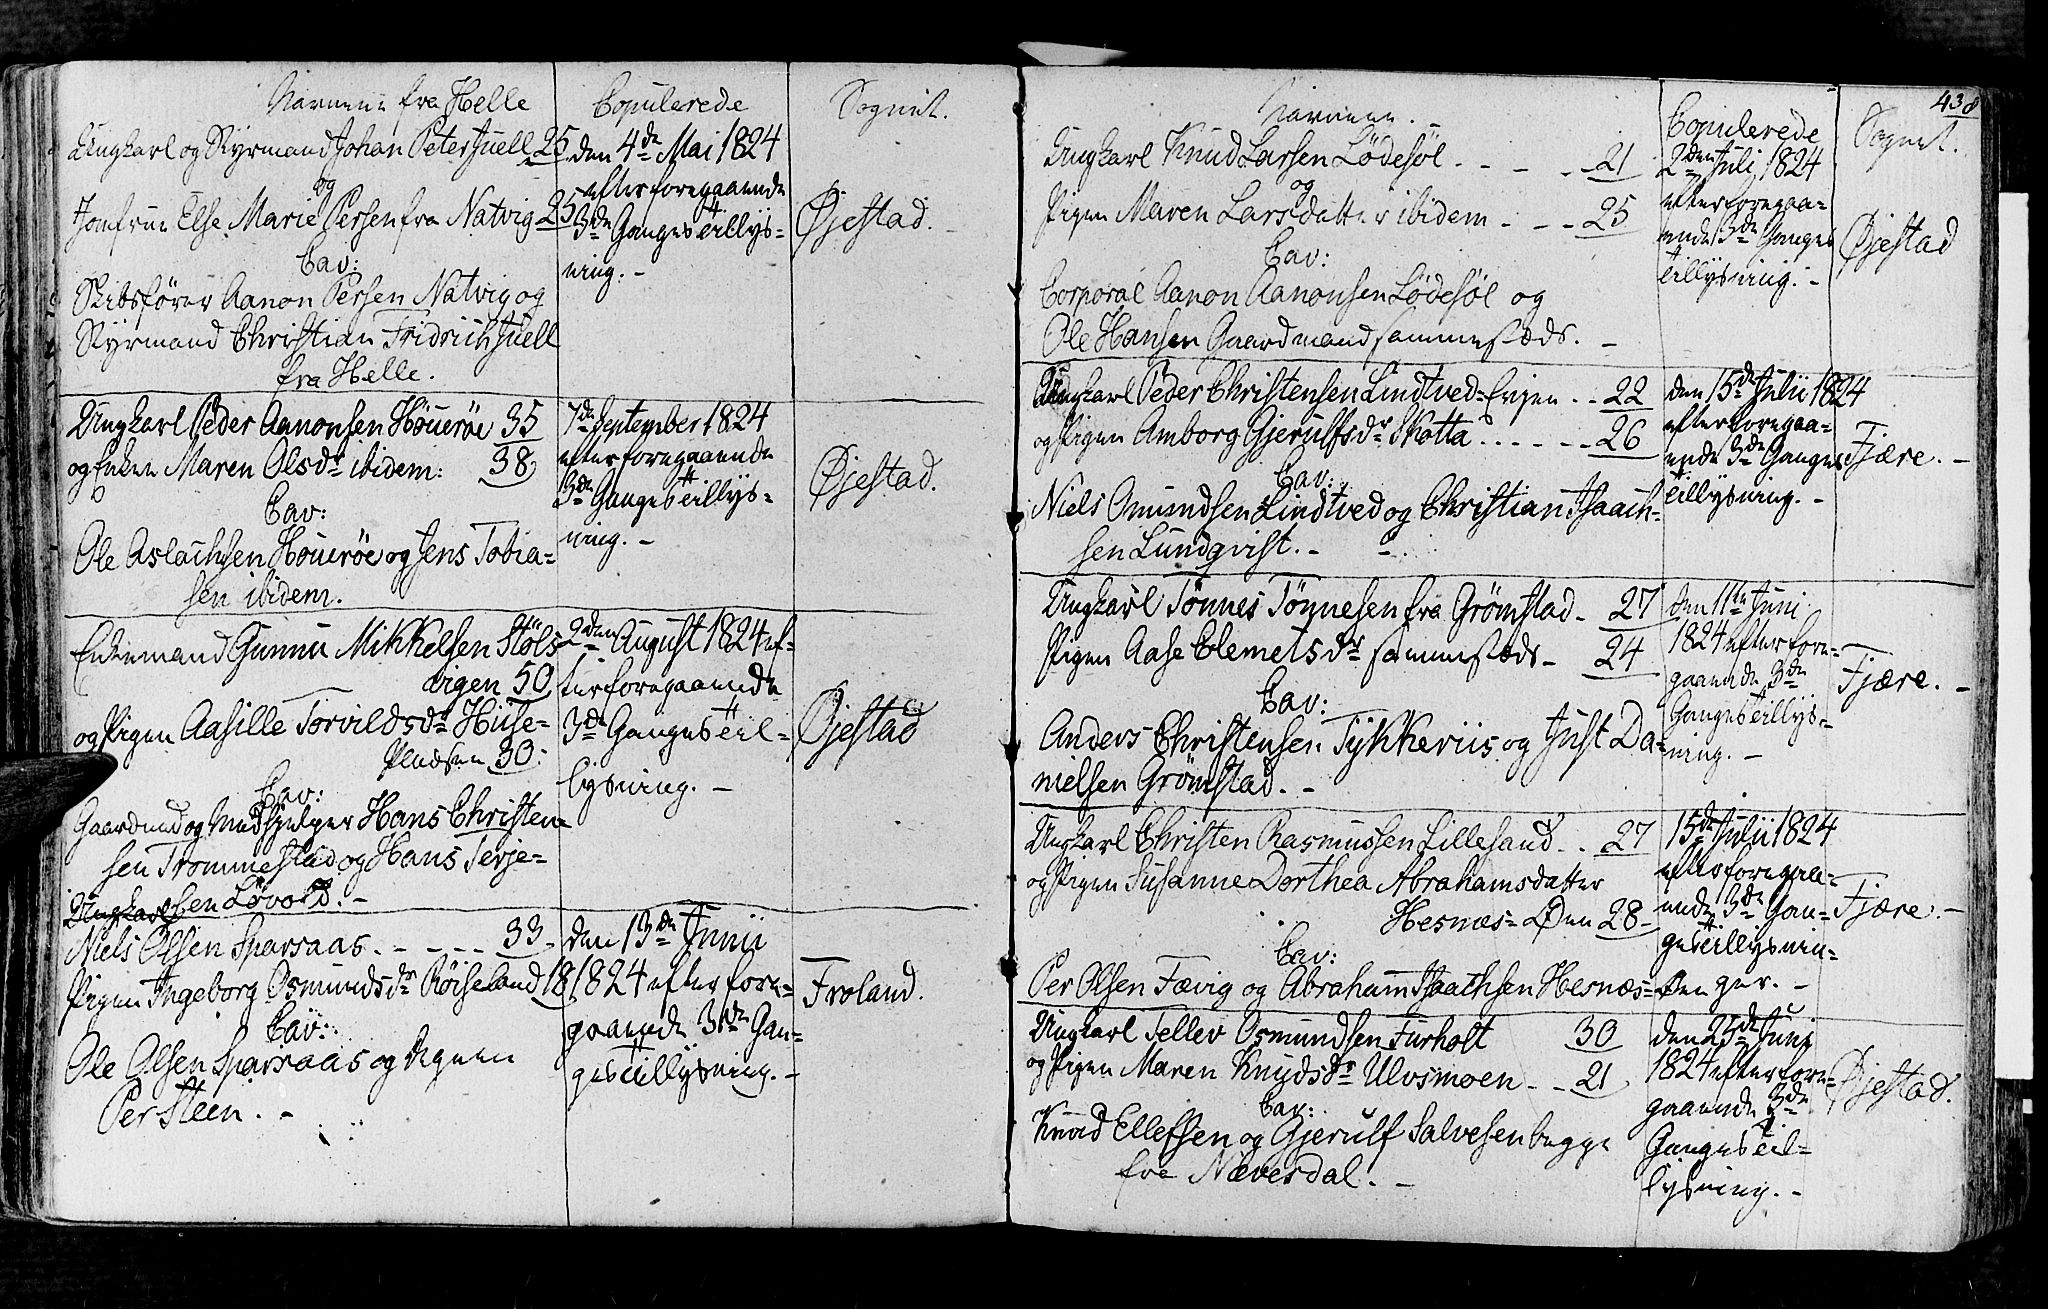 Navnene fra Helle
Copulerede
Sognet.
Ungkarl og Styrmand Johan Peter Juell 25
og
Jomfrue Else Marie Persen fra Natvig 25
Cav:
Skibsfører Aanon Persen Natvig og
Styrmand Christian Fridrich Juell
fra Helle.
den 4de Mai 1824
efter foregaaende
3de Ganges tillys=
ning. –
Øjestad.
Ungkarl Peder Aanonsen Høuerøe 35
og Enken Maren Olsdr ibidem: 38
Cav:
Ole Aslachsen Høuerøe og Jens Tobia=
sen ibidem.
7de September 1824
efter foregaaende
3de Ganges tillys=
ning. –
Øjestad.
Enkemand Gunnu Mikkelsen Støls
vigen 50
og Pigen Aasille Torvildsdr Huse=
Pladsen 30:
Cav:
Gaardmd og Medhjelper Hans Christen=
sen Trommestad og Hans Terje=
sen Løvold. –
2den August 1824 ef=
ter foregaaende
3de Ganges til=
lysning. –
Øjestad
Ungkarl
Niels Olsen Sparsaas. – – – – 33 –
Pigen Ingeborg Osmundsdr Røiseland 18
Cav:
Ole Olsen Sparsaas og Degnen
Per Steen. –
den 13de Junii
1824 efter fore=
gaaende 3de Gan=
ges tillysning. –
Froland.
438
Navnene. –
Copulerede
Sognet.
Ungkarl Knud Larsen Lødesøl. – – – 21
og
Pigen Maren Larsdatter ibidem – – – 25
Cav:
Corporal Aanon Aanonsen Lødesøl og
Ole Hansen Gaardmand sammestæds. –
2den Juli 1824
efter foregaa=
ende 3de Ganges
tillysning. –
Øjestad
Ungkarl Peder Christensen Lindtved=Evjen . . 22
og Pigen Amborg Gjerulfsdr Skotta . . . . – – 26
Cav:
Niels Omundsen Lindtved og Christian Isaach=
sen Lundqvist. – –
den 15de Julii 1824
efter foregaa=
ende 3de Ganges
tillysning. –
Fjære. –
Ungkarl Tønnes Tønnesen fra Grømstad – 27
Pigen Aase Clemetsdr sammestæds – 24
Cav:
Anders Christensen Tykkeriis og Just Da=
nielsen Grømstad. –
den 11te Juni
1824 efter fore=
gaaende 3de
Ganges tillys=
ning. –
Fjære. –
Ungkarl Christen Rasmussen Lillesand . . 27
og Pigen Susanne Dorthea Abrahamsdatter
Hesnæs=Øen 28 –
Cav:
Per Olsen Fævig og Abraham Isaachsen Hesnæs=Øen
15de Julii 1824
efter foregaa=
ende 3de Gan=
ges tillysnin=
ger. –
Fjære. –
Ungkarl Tellev Osmundsen Furholt 30
og Pigen Maren Knudsdr Ulvsmoen – – 21
Cav:
Knud Ellefsen og Gjerulf Salvesen begge
fra Næversdal. –
den 25de Juni
1824 efter fore=
gaaende 3de
Ganges til=
lysning. –
Øjestad.